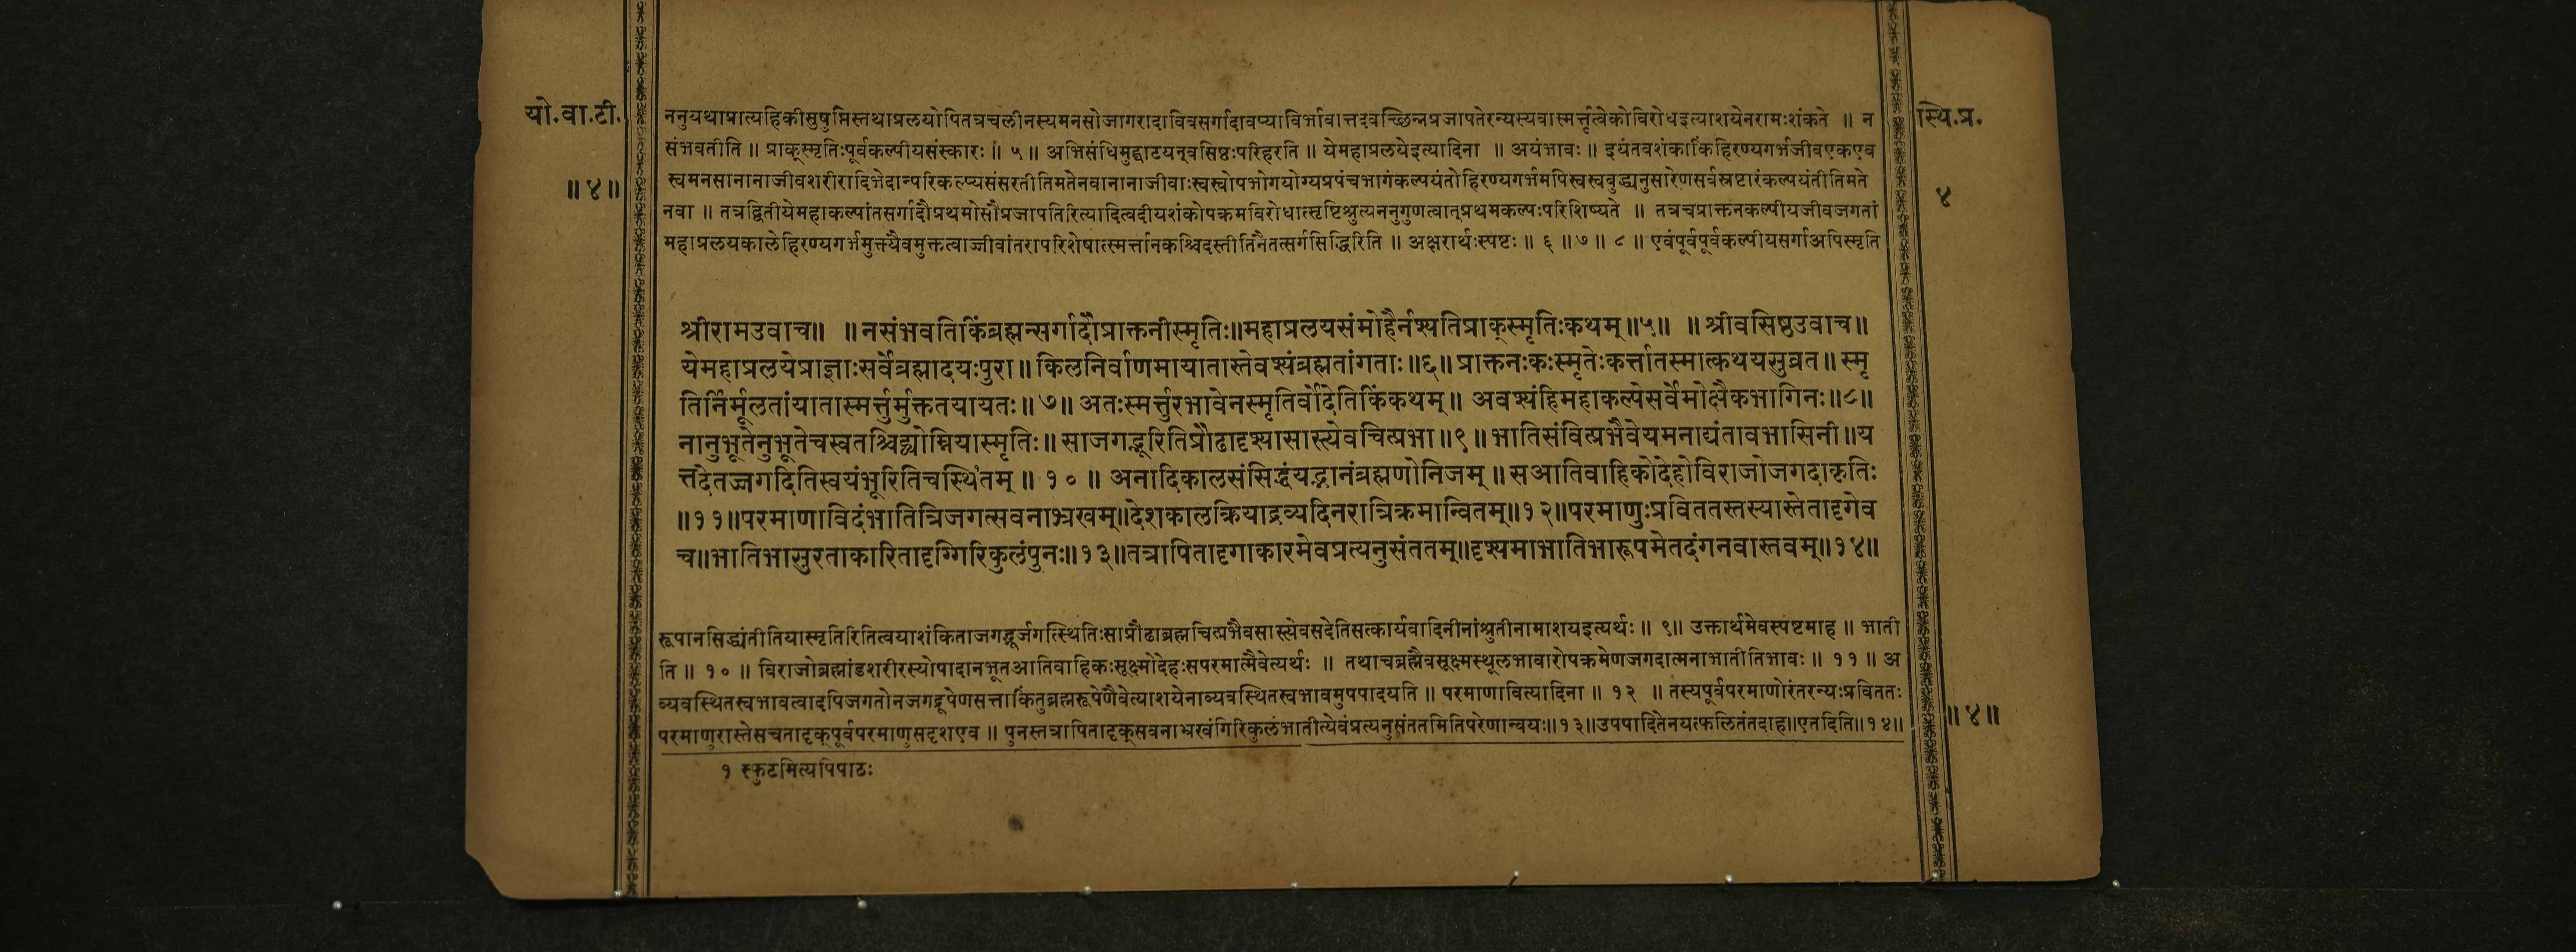 यो.वा.टी.
॥४॥
ननुयथाप्रात्यहिकीसुषुप्तिस्तथाप्रलयोपितत्रचलीनस्यमनसोजागरादाविवसर्गादावप्याविर्भावात्तदवच्छिन्नप्रजापतेरन्यस्यवास्मर्त्तृत्वेकोविरोधइत्याशयेनरामःशंकते ॥ न
संभवतीति ॥ प्राक्स्मृतिःपूर्वकल्पीयसंस्कारः ॥ ५ ॥ अभिसंधिमुद्घाटयन्वसिष्ठःपरिहरति ॥ येमहाप्रलयेइत्यादिना ॥ अयंभावः ॥ इयंतवशंकाकिंहिरण्यगर्भजीवएकएव
स्वमनसानानाजीवशरीरादिभेदान्परिकल्प्यसंसरतीतिमतेनवानानाजीवाःस्वस्वोपभोगयोग्यप्रपंचभागंकल्पयंतोहिरण्यगर्भमपिस्वस्वबुद्ध्यनुसारेणसर्वस्रष्टारंकल्पयंतीतिमते
नवा ॥ तत्रद्वितीयेमहाकल्पांतसर्गादौप्रथमोसौप्रजापतिरित्यादित्वदीयशंकोपक्रमविरोधात्सृष्टिश्रुत्यननुगुणत्वात्प्रथमकल्पःपरिशिष्यते ॥ तत्रचप्राक्तनकल्पीयजीवजगतां
महाप्रलयकालेहिरण्यगर्भमुक्त्यैवमुक्तत्वाज्जीवांतरापरिशेषात्स्मर्त्तानकश्चिदस्तीतिनैतत्सर्गसिद्धिरिति ॥ अक्षरार्थःस्पष्टः ॥ ६ ॥ ७ ॥ ८ ॥ एवंपूर्वपूर्वकल्पीयसर्गाअपिस्मृति
श्रीरामउवाच॥ ॥नसंभवतिकिंब्रह्मन्सर्गादौप्राक्तनीस्मृतिः॥महाप्रलयसंमोहैर्नश्यतिप्राक्स्मृतिःकथम्॥५॥ ॥श्रीवसिष्ठउवाच॥
येमहाप्रलयेप्राज्ञाःसर्वेब्रह्मादयःपुरा॥किलनिर्वाणमायातास्तेवश्यंब्रह्मतांगताः॥६॥प्राक्तनःकःस्मृतेःकर्त्तातस्मात्कथयसुव्रत॥स्मृ
तिर्निर्मूलतांयातास्मर्त्तुर्मुक्ततयायतः॥७॥अतःस्मर्त्तुरभावेनस्मृतिर्वोदेतिकिंकथम्॥ अवश्यंहिमहाकल्पेसर्वेमोक्षैकभागिनः॥८॥
नानुभूतेनुभूतेचस्वतश्चिद्व्योम्नियास्मृतिः॥साजगद्भूरितिप्रौढादृश्यासास्त्येवचित्प्रभा॥९॥भातिसंवित्प्रभैवेयमनाद्यंतावभासिनी॥य
त्तदेतज्जगदितिस्वयंभूरितिचस्थि१तम्॥१०॥अनादिकालसंसिद्धंयद्भानंब्रह्मणोनिजम्॥सआतिवाहिकोदेहोविराजोजगदाकृतिः
॥११॥परमाणाविदंभातित्रिजगत्सवनाभ्रखम्॥देशकालक्रियाद्रव्यदिनरात्रिक्रमान्वितम्॥१२॥परमाणुःप्रविततस्तस्यास्तेतादृगेव
च॥भातिभासुरताकारितादृग्गिरिकुलंपुनः॥१३॥तत्रापितादृगाकारमेवप्रत्यनुसंततम्॥दृश्यमाभातिभारूपमेतदंगनवास्तवम्॥१४॥
रूपानसिद्ध्यंतीतियास्मृतिरितित्वयाशंकिताजगद्भूर्जगत्स्थितिःसाप्रौढाब्रह्मचित्प्रभैवसास्त्येवसदेतिसत्कार्यवादिनीनांश्रुतीनामाशयइत्यर्थः ॥ ९॥ उक्तार्थमेवस्पष्टमाह ॥ भाती
ति ॥ १० ॥ विराजोब्रह्मांडशरीरस्योपादानभूतआतिवाहिकःसूक्ष्मोदेहःसपरमात्मैवेत्यर्थः ॥ तथाचब्रह्मैवसूक्ष्मस्थूलभावारोपक्रमेणजगदात्मनाभातीतिभावः ॥ ११ ॥ अ
व्यवस्थितस्वभावत्वादपिजगतोनजगद्रूपेणसत्ताकिंतुब्रह्मरूपेणैवेत्याशयेनाव्यवस्थितस्वभावमुपपादयति ॥ परमाणावित्यादिना ॥ १२ ॥ तस्यपूर्वपरमाणोरंतरन्यःप्रविततः
परमाणुरास्तेसचतादृक्पूर्वपरमाणुसदृशएव ॥ पुनस्तत्रापितादृक्सवनाभ्रखंगिरिकुलंभातीत्येवंप्रत्यनुसंततमितिपरेणान्वयः॥१३॥उपपादितेनयत्फलितंतदाह॥एतदिति॥१४॥
१ स्फुटमित्यपिपाठः
स्थि.प्र.
४
॥४॥